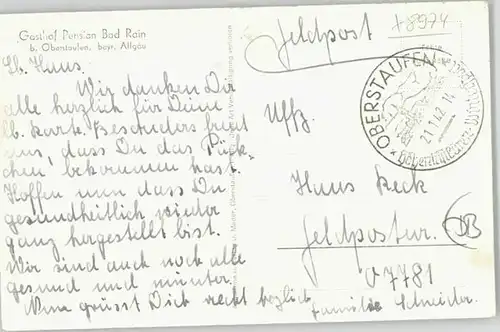 Gasthof Pension Bad Rain
b. Oberstaufen, bayr. Allgäu
Lb. Hans.
Wir danken Dir
alle herzlich für Deine
lb. Karte. Besonders freut
uns, dass Du das Päck-
chen bekommen hast.
Hoffen nun dass Du
gesundheitlich wieder
ganz hergestellt bist.
Wir sind auch noch alle
gesund und munter.
Nun grüsst Dich recht herzlich
Familie Schneider.
Feldpost
+8974
OBERSTAUFEN
21.1.42
Uffz.
Hans Beck
Feldpostnr.
07781
DB